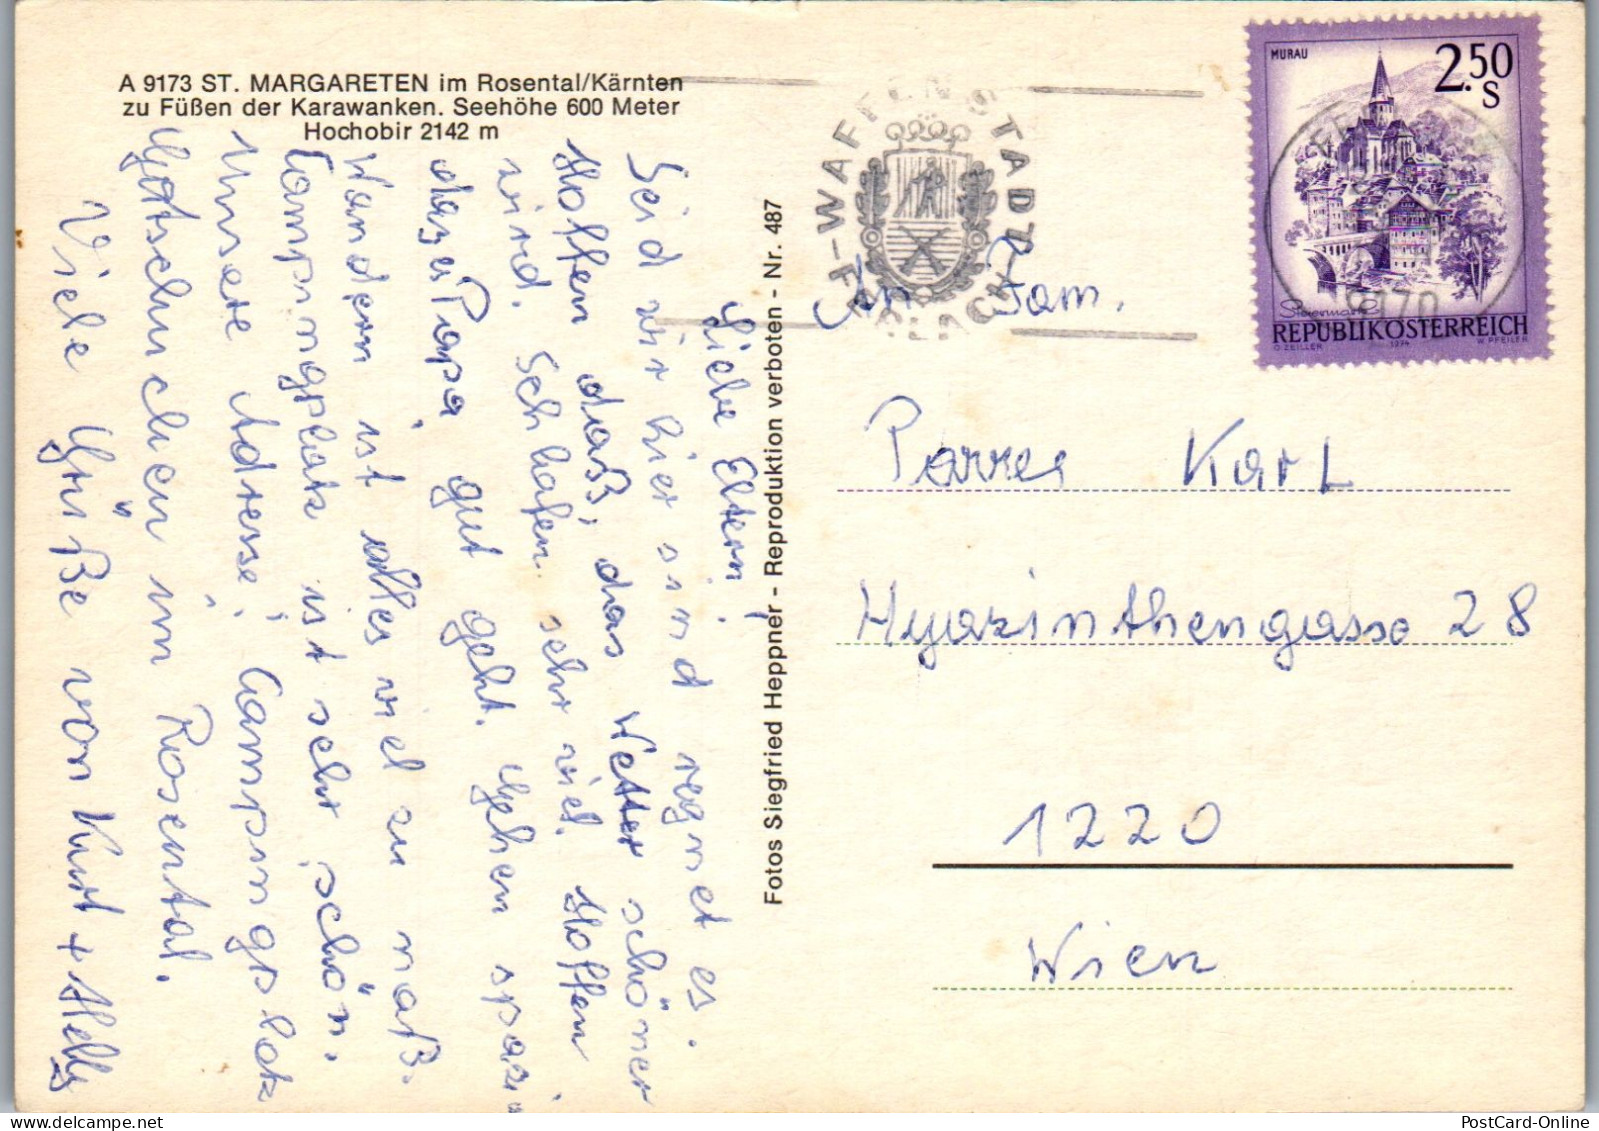 A 9173 ST. MARGARETEN im Rosental/Kärnten
zu Füßen der Karawanken. Seehöhe 600 Meter
Hochobir 2142 m
Liebe Eltern!
Seid wir hier sind regnet es.
Hoffen daß, das Wetter schöner
wird. Schlafen sehr viel. Hoffen
dass Papa gut geht. Gehen spazi
Wandern ist alles viel zu naß.
Campingplatz ist sehr schön.
Unsere Adresse: Campingplatz
Gotschuchen im Rosental.
Viele Grüße von Kurt + Helly
Fotos Siegfried Heppner - Reproduktion verboten - Nr. 487
WAFFENSTADT
FERLACH
MURAU
2.50
S
Steiermark
REPUBLIK ÖSTERREICH
O. ZEILLER 1974 W. PFEILER
9170
An Fam.
Karl
Hyazinthengasse 28
1220
Wien
PostCard-Online